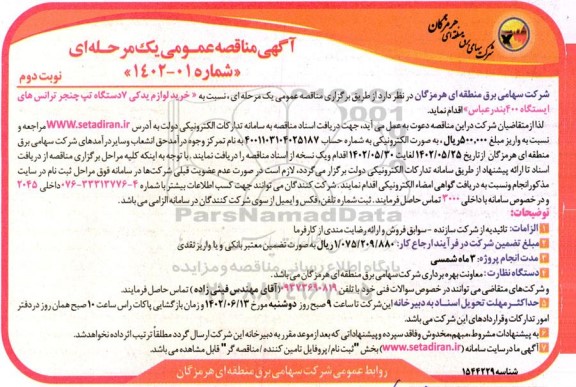 شرکت سهامی برق منطقه ای هرمزگان
آگهی مناقصه عمومی یک مرحله‌ای
«شماره ۰۱-۱۴۰۲»
نوبت دوم
شرکت سهامی برق منطقه ای هرمزگان در نظر دارد از طریق برگزاری مناقصه عمومی یک مرحله ای ، نسبت به « خرید لوازم یدکی ۷دستگاه تپ چنجر ترانس های
ایستگاه ۴۰۰بندرعباس» اقدام نماید.
لذا از متقاضیان شرکت در این مناقصه دعوت به عمل می آید، جهت دریافت اسناد مناقصه به سامانه تدارکات الکترونیکی دولت به آدرس www.setadiran.ir مراجعه و
نسبت به واریز مبلغ ۵۰۰،۰۰۰ ریال ، به صورت الکترونیکی به شماره حساب ۴۰۰۱۱۰۳۱۰۴۰۲۵۱۸۷ به نام تمرکز وجوه درآمد حق انشعاب و سایر درآمدهای شرکت سهامی برق
منطقه ای هرمزگان از تاریخ ۱۴۰۲/۰۵/۲۵ لغایت ۱۴۰۲/۰۵/۳۰ اقدام و یک نسخه از اسناد مناقصه را دریافت نمایند. با توجه به اینکه کلیه مراحل برگزاری مناقصه از دریافت
اسناد تا ارائه پیشنهاد از طریق سامانه تدارکات الکترونیکی دولت برگزار می گردد، لازم است در صورت عدم عضویت قبلی شرکت‌ها در سامانه فوق مراحل ثبت نام در سایت
مذکور انجام و نسبت به دریافت گواهی امضاء الکترونیکی اقدام نمایند. شرکت کنندگان می توانند جهت کسب اطلاعات بیشتر با شماره ۴-۳۳۳۱۳۷۷۶-۰۷۶ داخلی ۲۰۴۵
و در خصوص سامانه با داخلی ۳۰۰۰ تماس حاصل فرمایند. ثبت شماره تلفن، فکس و ایمیل از سوی شرکت کنندگان در سامانه الزامی می باشد.
توضیحات:
۱ الزامات: تائیدیه از شرکت سازنده - سوابق فروش و ارائه رضایت مندی از کارفرما
۲ مبلغ تضمین شرکت در فرآیند ارجاع کار: ۱/۰۷۵/۲۰۹/۸۸۰ ریال به صورت تضمین معتبر بانکی و یا واریز نقدی
۳ مدت انجام پروژه: ۳ ماه شمسی
۴ دستگاه نظارت: معاونت بهره برداری شرکت سهامی برق منطقه ای هرمزگان می باشد.
و شرکت‌های متقاضی می توانند در خصوص سوالات فنی خود با تلفن ۰۹۳۷۳۶۹۰۸۱۹ (آقای مهندس فینی زاده) تماس حاصل فرمایند.
۵ حداکثر مهلت تحویل اسناد به دبیرخانه این شرکت تا ساعت ۹ صبح روز دوشنبه مورخ ۱۴۰۲/۰۶/۱۳ و زمان بازگشایی پاکات راس ساعت ۱۰ صبح همان روز در دفتر
امور تدارکات و قراردادهای این شرکت می باشد.
۶ به پیشنهادات مشروط، مبهم، مخدوش و فاقد سپرده و پیشنهاداتی که بعد از موعد مقرر به دبیرخانه این شرکت ارسال گردد مطلقاً ترتیب اثر داده نخواهد شد.
۷ آگهی ما در سایت سامانه (www.setadiran.ir) بخش "ثبت نام / پروفایل تامین کننده / مناقصه گر" قابل مشاهده می باشد.
شناسه ۱۵۴۴۲۲۹
روابط عمومی شرکت سهامی برق منطقه ای هرمزگان
ParsNamadData
پایگاه اطلاع رسانی مناقصه و مزایده